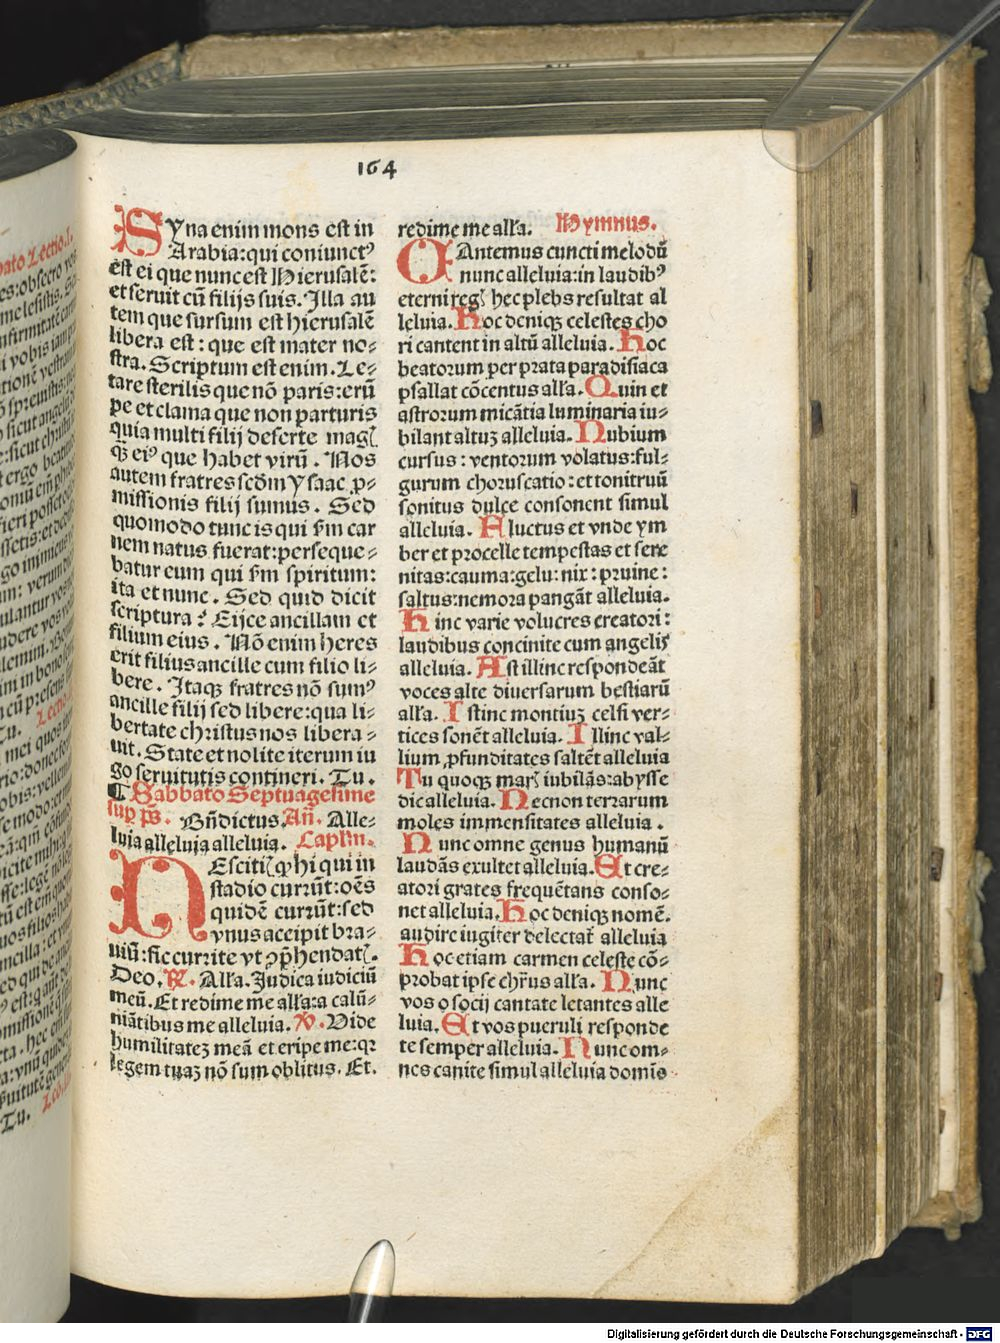 164
Syna enim mons est in
Arabia: qui coniunctꝰ
est ei que nunc est Hierusalē:
et seruit cū filijs suis. Illa au
tem que sursum est hierusalē
libera est: que est mater no⸗
stra. Scriptum est enim. Le⸗
tare sterilis que nō paris: erū
pe et clama que non parturis
quia multi filij deserte magꝭ
ꝙ̄ eiꝰ que habet virū. Nos
autem fratres scdm Ysaac ꝓ⸗
missionis filij sumus. Sed
quomodo tunc is qui ẜm car
nem natus fuerat: perseque⸗
batur eum qui ẜm spiritum:
ita et nunc. Sed quid dicit
scriptura? Eijce ancillam et
filium eius. Nō enim heres
erit filius ancille cum filio li⸗
bere. Itaqꝫ fratres nō sumꝰ
ancille filij sed libere: qua li⸗
bertate christus nos libera⸗
uit. State et nolite iterum iu
go seruitutis contineri. Tu.
¶ Sabbato Septuagesime
suꝑ ps. Bn̄dictus. Añ. Alle⸗
luia alleluia alleluia. Caplm.
NEscitꝭ ꝙ hi qui in
stadio currūt: oēs
quidē currūt: sed
vnus accipit bra⸗
uiū: sic currite vt ↄp̄hendatꝭ.
Deo. ℞. Alľa. Iudica iudiciū
meū. Et redime me alľa: a calū⸗
niātibus me alleluia. ℣. Vide
humilitateꝫ meā et eripe me: qꝛ
legem tuaꝫ nō sum oblitus. Et.
redime me alľa. Hymnus.
CAntemus cuncti melodū
nunc alleluia: in laudibꝰ
eterni regꝭ hec plebs resultat al
leluia. Hoc deniqꝫ celestes cho
ri cantent in altū alleluia. Hoc
beatorum per prata paradisiaca
psallat cōcentus alľa. Quin et
astrorum micātia luminaria iu⸗
bilant altuꝫ alleluia. Nubium
cursus: ventorum volatus: ful⸗
gurum choruscatio: et tonitruū
sonitus dulce consonent simul
alleluia. Fluctus et vnde ym
ber et procelle tempestas et sere
nitas: cauma: gelu: nix: pruine:
saltus: nemora pangāt alleluia.
Hinc varie volucres creatori:
laudibus concinite cum angelis
alleluia. Ast illinc respondeāt
voces alte diuersarum bestiarū
alľa. Istinc montiuꝫ celsi ver⸗
tices sonēt alleluia. Illinc val⸗
lium ꝓfunditates saltēt alleluia
Tu quoqꝫ marꝭ iubilās: abysse
dic alleluia. Necnon terrarum
moles immensitates alleluia.
Nunc omne genus humanū
laudās exultet alleluia. Et cre⸗
atori grates frequētans conso⸗
net alleluia. Hoc deniqꝫ nomē.
audire iugiter delectat̄ alleluia
Hoc etiam carmen celeste cō⸗
probat ipse chr̄us alľa. Nunc
vos o socij cantate letantes alle
luia. Et vos pueruli responde
te semper alleluia. Nunc om⸗
nes canite simul alleluia domīs
Digitalisierung gefördert durch die Deutsche Forschungsgemeinschaft - DFG